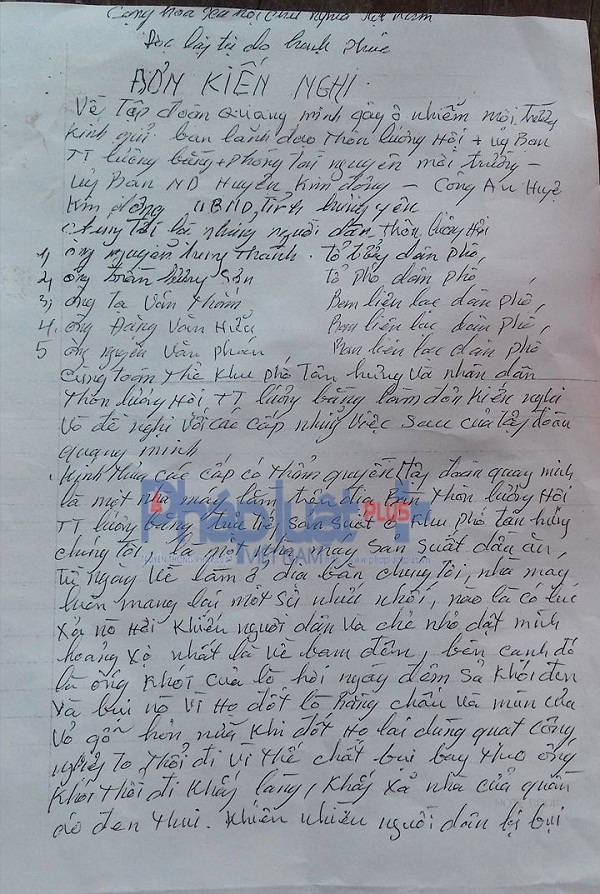 Cộng hòa xã hội chủ nghĩa Việt Nam
Độc lập tự do hạnh phúc
ĐƠN KIẾN NGHỊ
Về Tập đoàn Quang minh gây ô nhiễm môi trường
Kính gửi: ban lãnh đạo thôn lương Hội + Uỷ Ban
TT lương bằng + phòng tài nguyên môi trường –
Uỷ Ban ND Huyện Kim động – Công An Huyện
Kim động UBND tỉnh hưng yên
chúng Tôi là những người dân thôn lương Hội
1, ông nguyễn trung thành. Tổ trưởng dân phố,
2, ông trần hương Sơn Tổ phó dân phố,
3, ông Tạ Văn thăm, Ban liên lạc dân phố,
4, ông Đặng Văn Hiếu Ban liên lạc dân phố,
5 ông nguyễn Văn phán Ban liên lạc dân phố
cùng toàn thể khu phố Tân hưng và nhân dân
thôn lương Hội, TT lương bằng làm đơn kiến nghị
Và đề nghị với các cấp những việc sau của tập đoàn
quang minh
. Kính thưa các cấp có thẩm quyền tập đoàn quang minh
là một nhà máy làm trên địa Bàn thôn lương Hội
TT lương bằng trực tiếp sản suất ở khu phố tân hưng
chúng tôi, là một nhà máy sản suất dầu ăn,
Từ ngày về làm ở địa bàn chúng tôi, nhà máy
luôn mang lại một sự nhức nhối, nào là có lúc
xả nồ Hơi khiến người dân và chẻ nhỏ dật mình
hoảng sợ nhất là về bam đêm, bên cạnh đó
là ống khói của lò hơi ngày đêm sả khói đen
và bụi nò vì Họ đốt lò bằng chấu và mùn cưa
Vỏ gỗ hơn nữa khi đốt Họ lại dùng quạt công
nghiệp to thổi đi vì thế chất bụi bay theo ống
khói thổi đi khắp làng, khắp xả nhà cửa quần
áo đen thui. khiến nhiều người dân bị bụi
Pháp Luật PLUS
VIỆT NAM